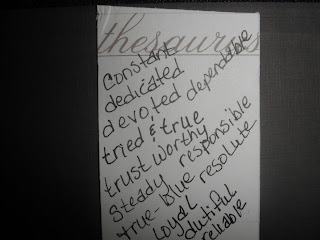 thesaurus
Constant
dedicated
devoted dependable
tried & true
trustworthy
Steady responsible
true-blue resolute
Loyal dutiful
reliable